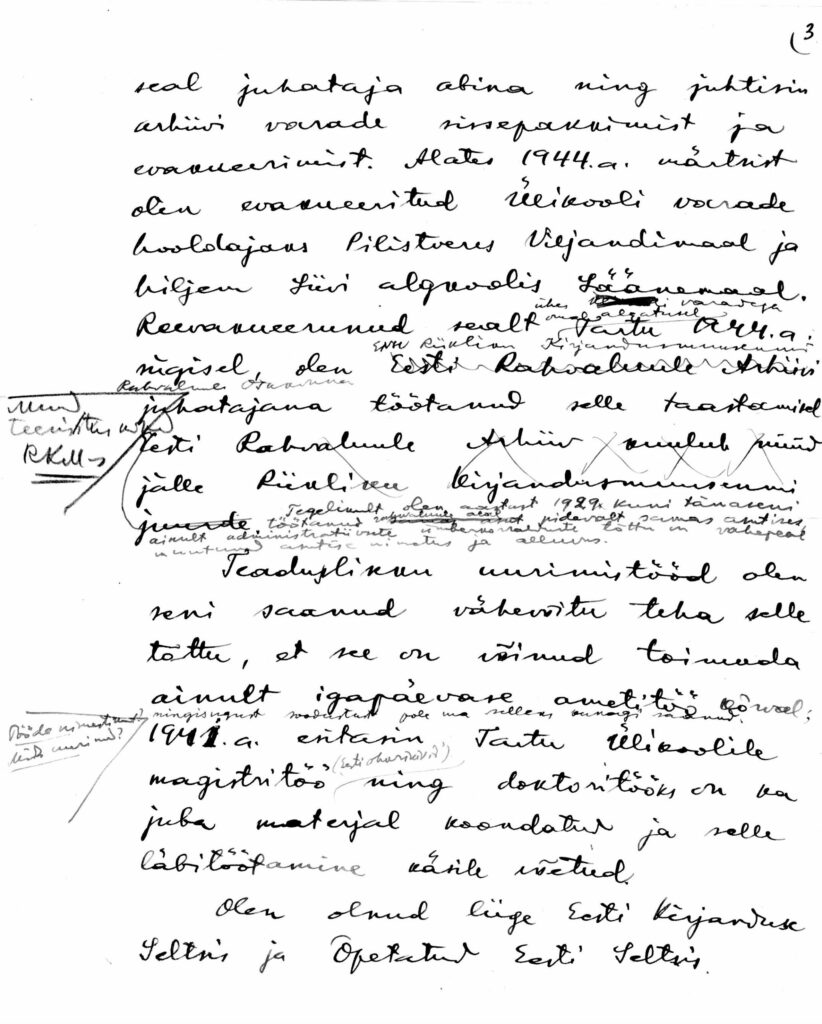 3
seal juhataja abina ning juhtisin
arhiivi varade sissepakkimist ja
evakueerimist. Alates 1944.a. märtsist
olen evakueeritud Ülikooli varade
hooldajaks Pilistveres Viljandimaal ja
hiljem Liivi algkoolis Läänemaal.
ühes varadega
omal algatusel
Reevakueerunud sealt Tartu 1944.a.
ENSV Riikliku Kirjandusmuuseumi
sügisel, olen Eesti Rahvaluule Arhiivi
Rahvaluule Osakonna
juhatajana töötanud selle taastamisel
Muud
teenistus
RKM-s
Eesti Rahvaluule Arhiiv kuulub nüüd
jälle Riikliku Kirjandusmuuseumi
juurde.
Tegelikult olen aastast 1929. kuni tänaseni
töötanud pidevalt samas asutises,
ainult administratiivsete tõttu on vahepeal
muutunud asutise nimetus ja alluvus.
Teaduslikku uurimistööd olen
seni saanud vähevõitu teha selle
tõttu, et see on võinud toimuda
ainult igapäevase ametitöö kõrval;
mingisugust soodustust pole ma selleks kunagi saanud.
Tööde nimestikud?
uurinud?
1941.a. esitasin Tartu Ülikoolile
magistritöö (Eesti ohvrikivid) ning doktoritööks on ka
juba materjal koondatud ja selle
läbitöötamine käsile võetud.
Olen olnud liige Eesti Kirjanduse
Seltsis ja Õpetatud Eesti Seltsis.